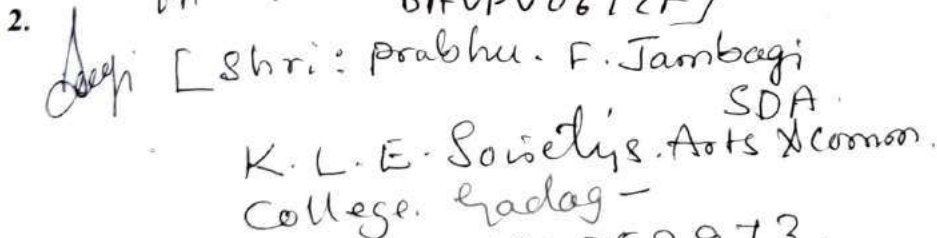 2.
[Shri: Prabhu. F. Jambagi
SDA.
K. L. E. Soisetiys. Arts & Common.
College. Gadag –